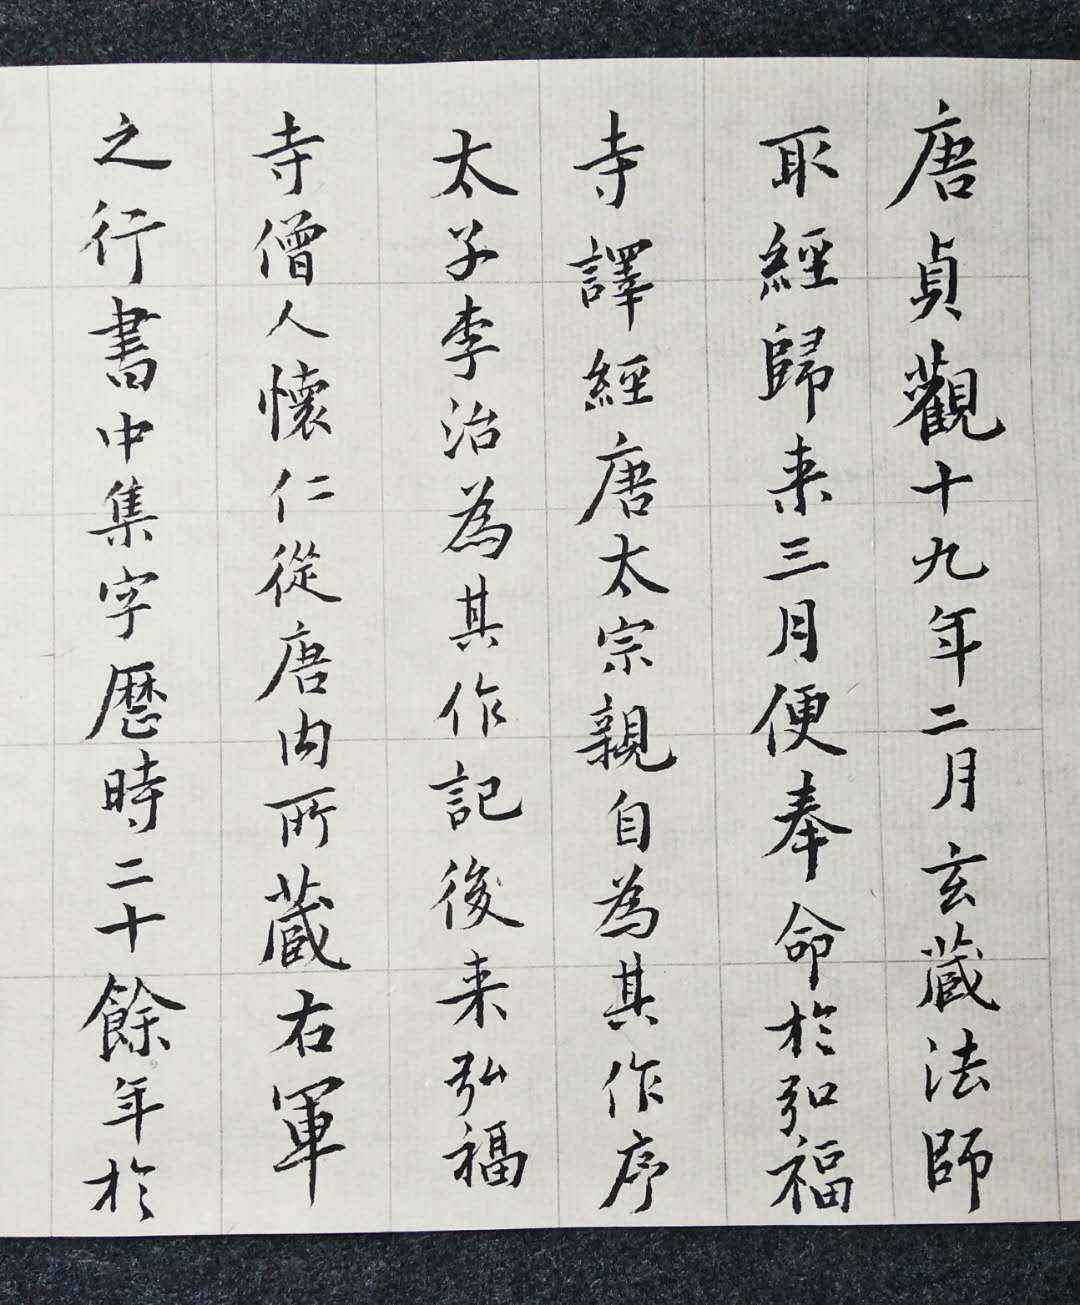 唐貞觀十九年二月玄藏法師
取經歸来三月便奉命於弘福
寺譯經唐太宗親自為其作序
太子李治為其作記後来弘福
寺僧人懷仁從唐内所藏右軍
之行書中集字歷時二十餘年於